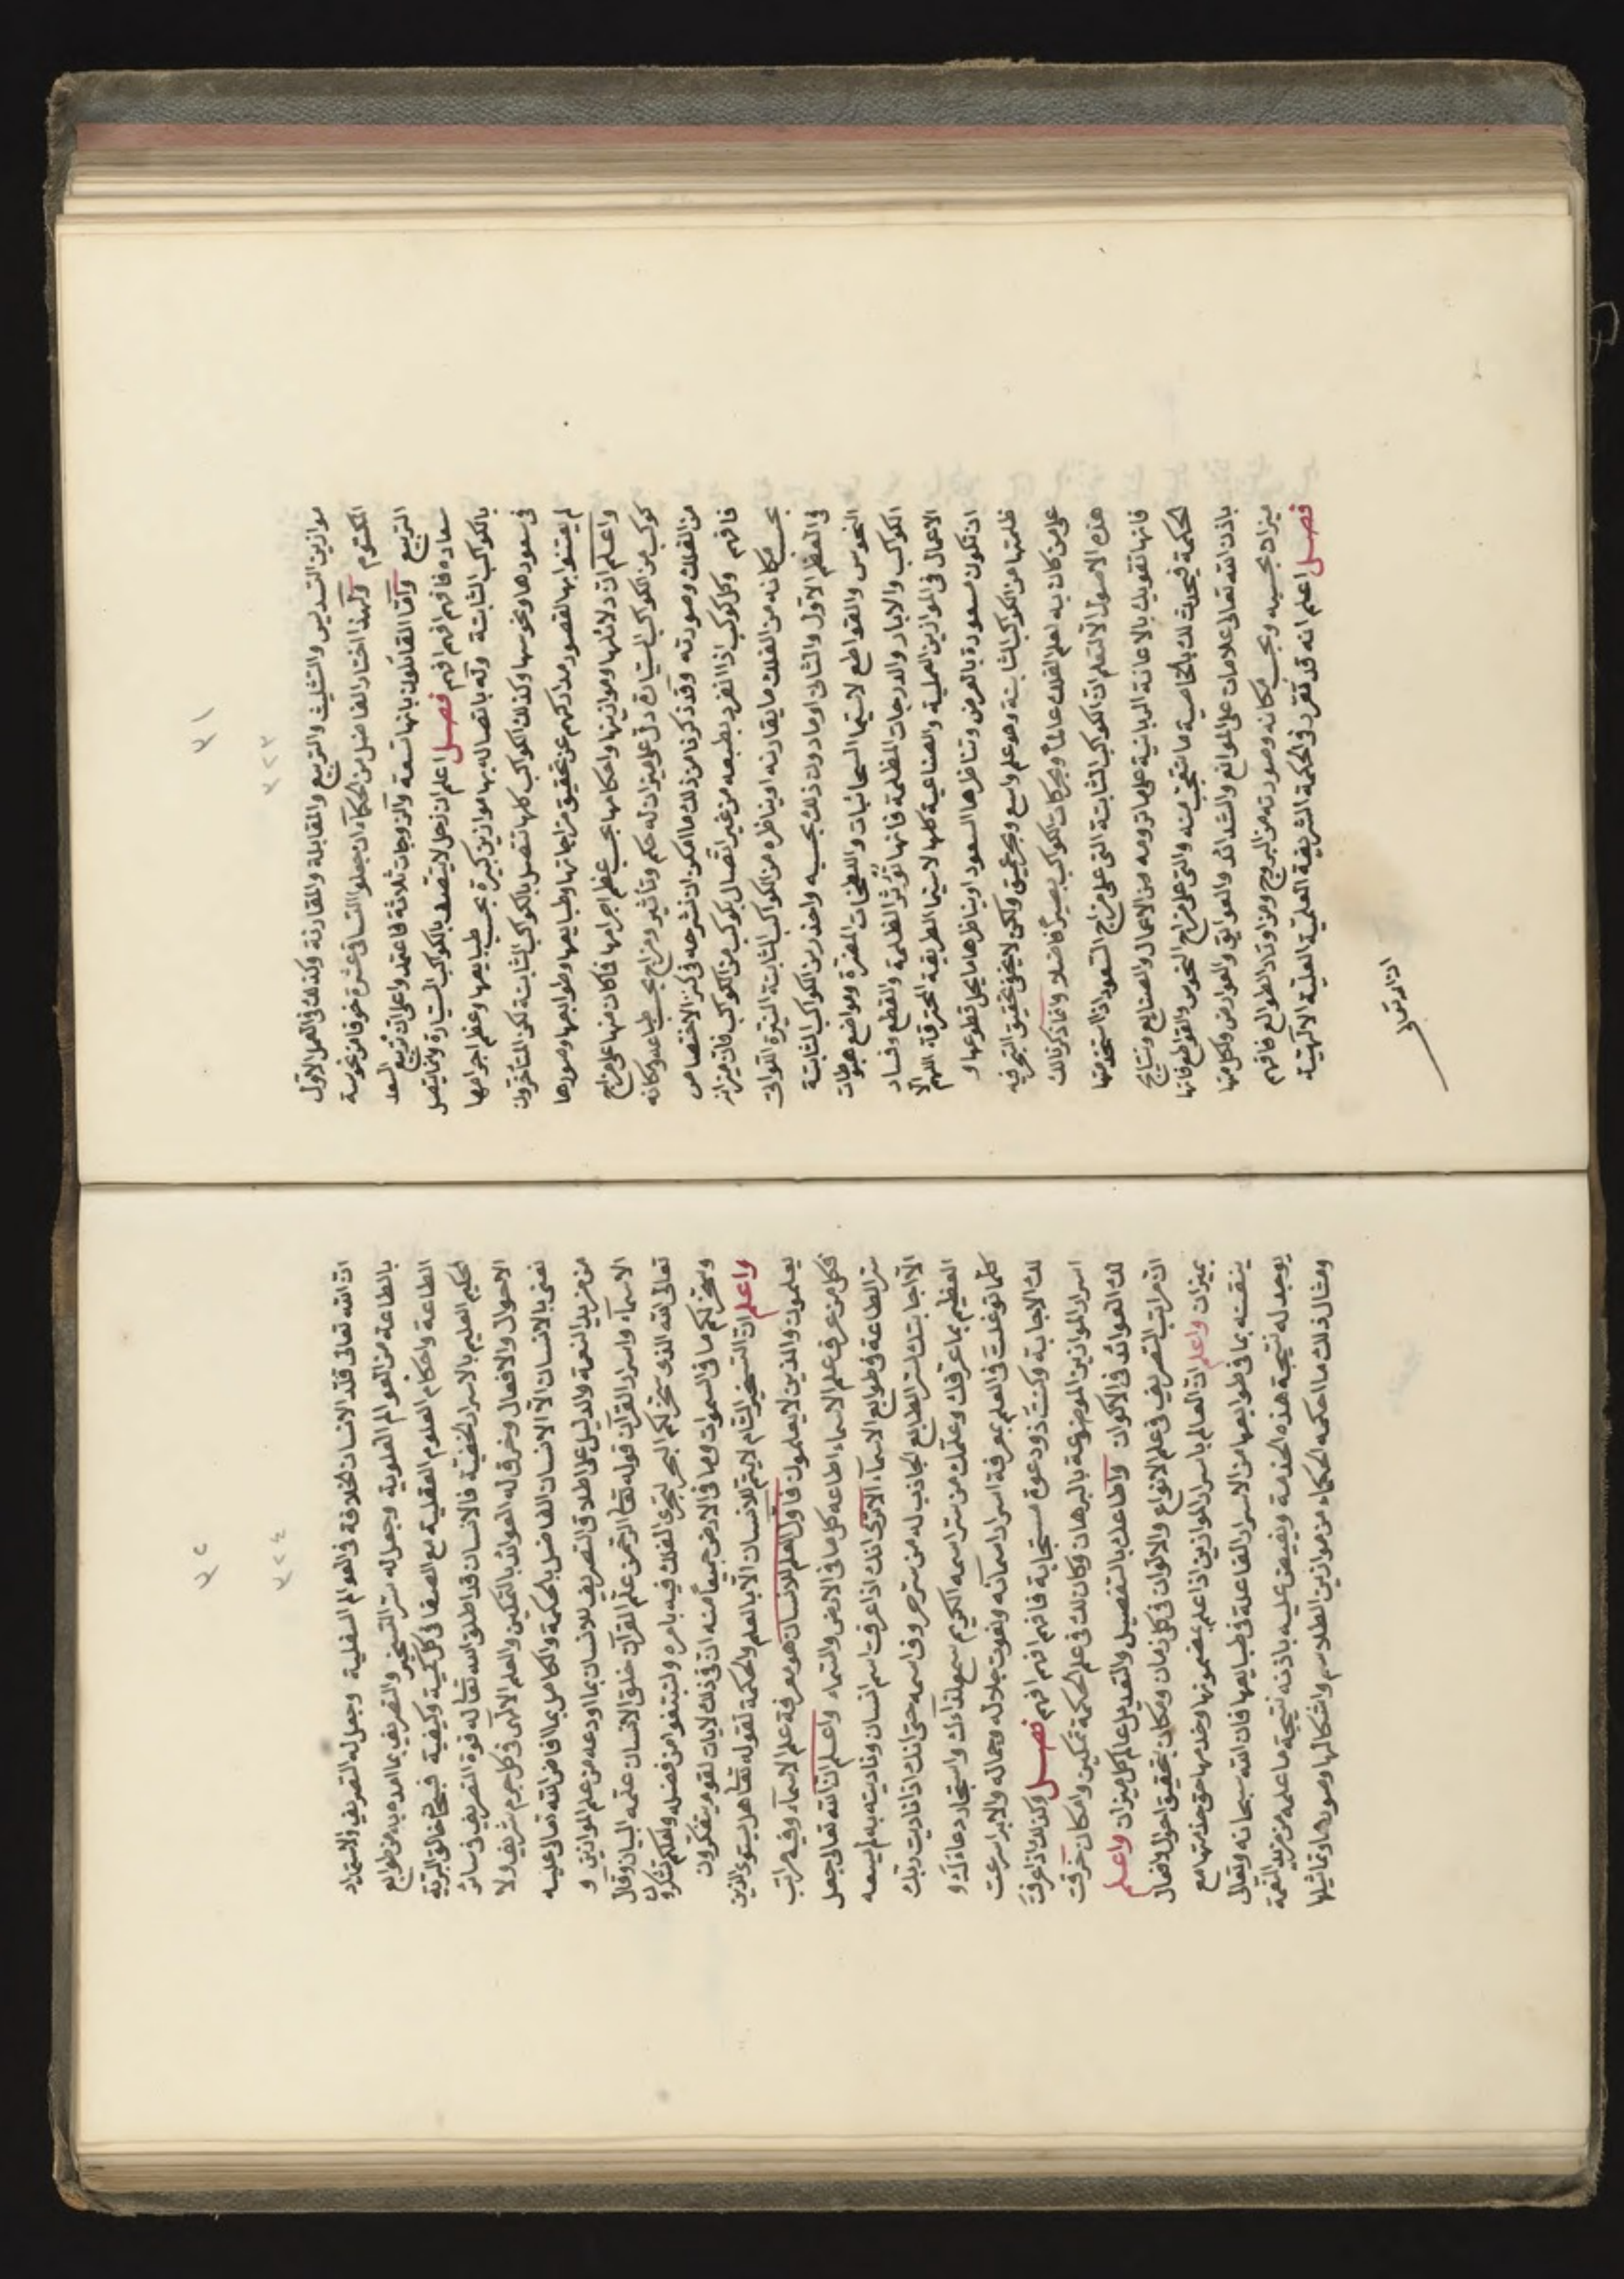 ٣١
٣٢٣
موازين التسديس والتثليث والتربيع والمقابلة والمقارنة وكذلك في العمل الاول
المكتوم ولهذا اختار الفاضل من الحكماء ان جعلوا التساقي عشرة خوفا من نحوسة
التربيع وامّا القائلون بانها تسعة والزوجات ثلاثة فاعتمدوا على ان تربيع السعد
سعادة فافهم افهم افهم فصل اعلم ان زحل لا يتصل بالكواكب السيارة وانما يتصل
بالكواكب الثابتة وله باتصاله بها موازين كبيرة بحسب طبايعها وعظم اجرامها
في سعودها ونحوسها وكذلك الكواكب كلها تتصل بالكواكب الثابتة لكن المتأخرون
لم يعتنوا بها لقصور مداركهم عن تحقيق مزاجاتها وطبايعها وطوابعها وصورها
واعلم ان دلائلها وموازينها واحكامها بحسب عظم اجرامها فما كان منها على مزاج
كوكب من الكواكب السيارة دل على ميزان له حكم وتأثير ومزاج بحسب طباعه ومكانه
من الفلك وصورته وقد ذكرنا من ذلك ما امكن ان نشرحه في كنز الاختصاص
فافهم وكل كوكب اذا انفرد بطبعه من غير اتصال بكوكب من الكواكب فان ميزانه
بحسب مكانه من الفلك ما يقارنه او يناظره من الكواكب الثابتة النيرة اللواتي
في العظم الاول والثاني او ما دون ذلك بحسبه واحذر من الكواكب الثابتة
النحوس والقواطع لا سيما السحابيات واللطخات المضرة ومواضع هبوطات
الكواكب والآبار والدرجات المظلمة فانها تؤثر الظلمة والقطع وفساد
الاعمال في الموازين العملية والصناعية كلها لا سيما الطريقة المحترقة اللهم الا
ان تكون مسعودة بالعرض وتناظرها السعود او يناظرها ما يحل قطوعها و
ظلمتها من الكواكب الثابتة وهو علم واسع وبحر عميق ولكن لا يخفى تحقيق التحرّي فيه
على من كان به لعلم الفلك عالماً وبحركات الكواكب بصيراً فاضلا وانما ذكرنا لك
هذه الاصول الا لتعلم ان الكواكب الثابتة التي على مزاج السعود اذا استخدمتها
فانها تقويك بالاعانة الربانية على ما ترومه من الاعمال والصنايع ونتايج
الحكمة فيحدث لك بالخاصية ما تتعجب منه والتي على مزاج النحوس والقواطع فانها
باذن الله تعالى علامات على الموانع والشدائد والعوايق والعوارض ولكل منها
ميزان بحسبه وبحسب مكانه وصورته من البروج ومن اوتاد الطوالع فافهم
فصل اعلم انه قد تقرر في الحكمة الشريفة العلمية العلية الالهية
ان الله تعالى
٣٢
٣٢٤
ان الله تعالى قلد الانسان الخلافة في العوالم السفلية وجعل له التصريف والاستمداد
بالطاعة من العوالم العلوية وجعل له سر التسخير والتصريف بما امده به من طوابع
الطاعة واحكام العلوم العقلية مع الصفا في كل كمية وكيفية فسبحان خالق البرية
الحكيم العليم بالاسرار الخفية فالانسان قد اطلق الله تعالى له قوة التصريف في سائر
الاحوال والافعال وخرق له العوائد بالتمكين والعلم الالهي في كل جرم شريف ولا
نعني بالانسان الا الانسان الفاضل بالحكمة والكامل بما افاض الله تعالى عليه
من مزيد النعمة والدليل على اطلاق التصريف للانسان بما اودعه من علم الموازين و
الاسماء واسرار القرآن قوله تعالى الرحمن علم القرآن خلق الانسان علمه البيان وقال
تعالى الله الذي سخر لكم البحر لتجري الفلك فيه بامره ولتبتغوا من فضله ولعلكم تشكرون
وسخر لكم ما في السموات وما في الارض جميعاً منه ان في ذلك لايات لقوم يتفكرون
واعلم ان التسخير التام لا يتم للانسان الا بالعلم والحكمة لقوله تعالى هل يستوي الذين
يعلمون والذين لا يعلمون فاول العلم للانسان هو معرفة علم الاسماء وفيه مراتب
فكل من عرف علم الاسماء اطاعه كل ما في الارض والسماء واعلم ان الله تعالى جعل
سر الطاعة في طوابع الاسماء الا ترى انك اذا عرفت اسم انسان وناديته به لم يسعه
الا اجابتك لسر الطابع الجاذب له من سر حروف اسمه حتى انك اذا ناديت ربك
العظيم بما عرفك وعلمك من سر اسمه الكريم سمع نداءك واستجاب دعاءك و
كلما توغلت في العلم بمعرفة اسرار اسمائه ونعوت جلاله وجماله والابر اسرعت
لك الاجابة وكنت ذو دعوة مستجابة فافهم افهم افهم فصل وكذلك اذا عرفت
اسرار الموازين الموضوعة بالبرهان وكان لك في علم الحكمة تمكين وامكان خرقت
لك العوائد في الاكوان واطاعك بالتفصيل والتعديل عالم كل ميزان واعلم
ان مراتب التصريف في علم الانواع والالوان في كل زمان ومكان بتحقيق احوال الافعال
بميزان واعلم ان العالم باسرار الموازين اذا علم بمضمونها وخدمها حق خدمتها مع
يتقنه بما في طوابعها من الاسرار الفاعلة في طبايعها فان الله سبحانه وتعالى
يوجد له نتيجة هذه الخدمة ويفيض عليه باذنه نتيجة ما علمه من مزيد النعمة
ومثال ذلك ما احكمه الحكماء من موازين الطلاسم واشكالها وصورها وتماثيلها